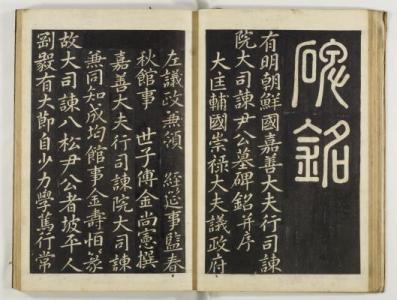 碑銘
有明朝鮮國嘉善大夫行司諫
院大司諫尹公墓碑銘并序
大匡輔國崇祿大夫議政府
左議政兼領 經筵事監春
秋館事 世子傅金尚憲撰
嘉善大夫行司諫院大司諫
兼同知成均館事金壽恒篆
故大司諫八松尹公者坡平人
剛毅有大節自少力學篤行常